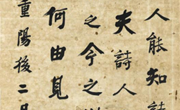 人能知詩
夫詩人
之今之
何由見
重陽後二